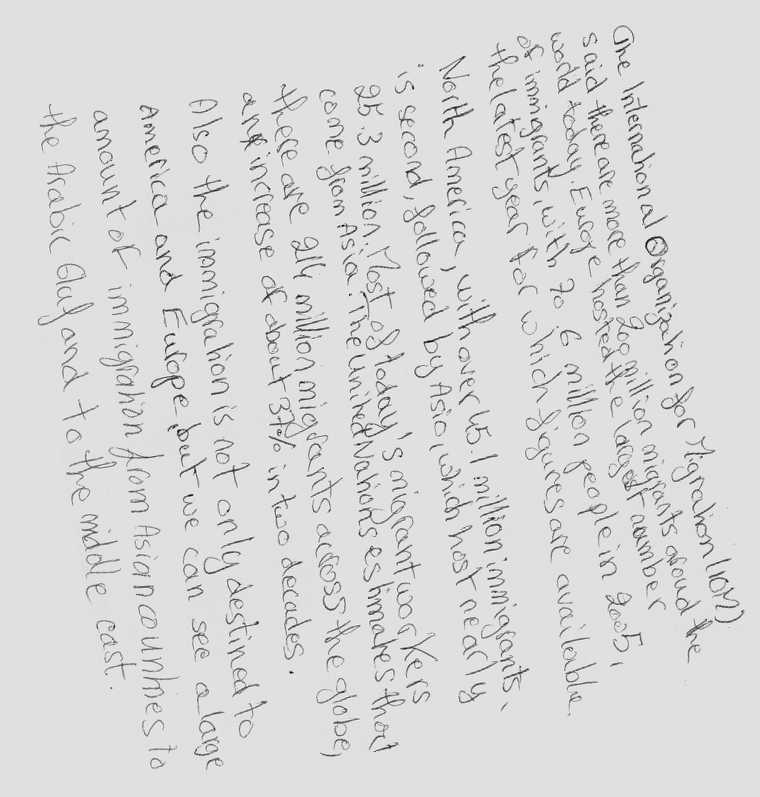 The International Organization for Migration (IOM)
said there are more than 200 million migrants aroud the
world today. Europe hosted the largest number
of immigrants, with 70 6 million people in 2005,
the latest year for which figures are available.
North America, with over 45.1 million immigrants,
is second, followed by Asia, which host nearly
25.3 million. Most of today's migrant workers
come from Asia. The United Nations estimates that
there are 214 million migrants across the globe,
an increase of about 37% in two decades.
Also the immigration is not only destined to
America and Europe, but we can see a large
amount of immigration from Asian countries to
the Arabic Gulf and to the middle east.